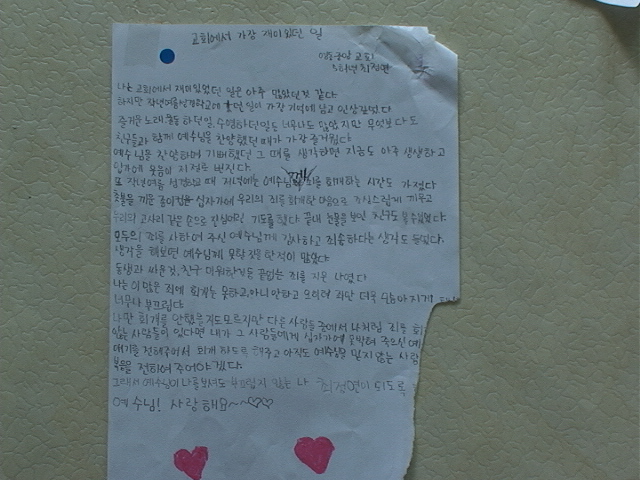 교회에서 가장 재미있었던 일
영동중앙 교회
3학년 최정연
나는 교회에서 재미있었던 일은 아주 많았던것 같다
하지만 작년여름성경학교에 했던 일이 가장 기억에 남고 인상깊었다
즐거운 노래, 율동 하던일, 수영하던일도 너무나도 많았지만 무엇보다도
친구들과 함께 예수님을 찬양했던 때가 가장 즐거웠다
예수님을 찬양하며 기뻐했던 그 때를 생각하면 지금도 아주 생생하고
입가에 웃음이 저절로 번진다
또 작년여름 성경학교 때 저녁에는 예수님께 죄를 회개하는 시간도 가졌다
촛불을 끼운 종이컵을 십자가에 우리의 죄를 회개한 마음으로 조심스럽게 끼우고
우리의 고사리 같은 손으로 진심어린 기도를 했다 끝내 눈물을 보인 친구도 볼수있었다
모두의 죄를 사하여 주신 예수님께 감사하고 죄송하다는 생각도 들었다
생각을 해보면 예수님께 못할 짓을 한적이 많았다
동생과 싸운것, 친구 미워한것등 끝없는 죄를 지은 나였다
나는 이 많은 죄에 회개는 못하고, 아니 안하고 오히려 죄만 더욱 많아지게
너무나 부끄럽다
나만 회개를 안했을지도 모르지만 다른 사람들 중에서 나처럼 죄를 회
않는 사람들이 있다면 내가 그 사람들에게 십자가에 못박혀 죽으신 예
얘기를 전해주어서 회개 하도록 해주고 아직도 예수님을 믿지않는 사람
복음을 전하여 주어야 겠다
그래서 예수님이 나를 보셔도 부끄럽지 않는 나 최정연이 되도록
예수님! 사랑해요~~♡♡